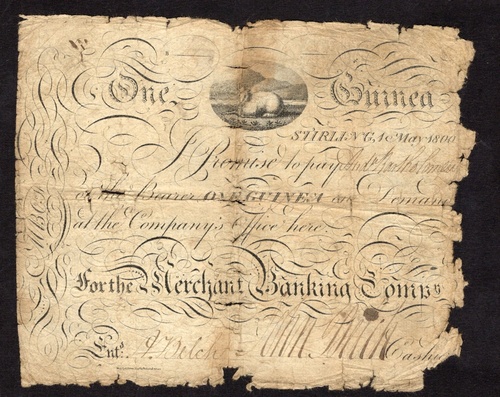 One Guinea
STIRLING, 1 May 1800
I Promise to pay
or the Bearer ONE GUINEA on Demand
at the Company's Office here.
For the Merchant Banking Compy
Entd. J. Welch Cashr